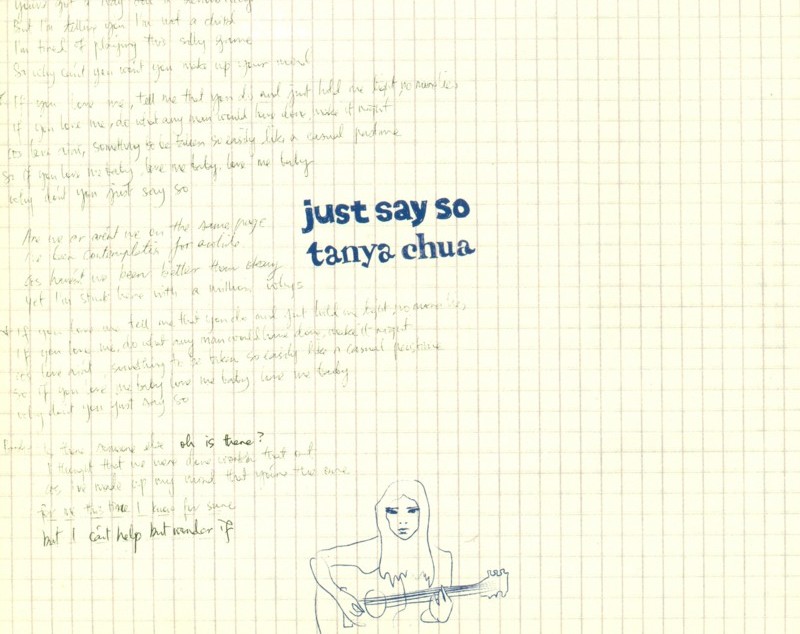 But I'm tellin you I'm not a child
I'm tired of playing this silly game
So why can't you won't you make up your mind
If you love me, tell me that you do and just hold me tight, no more lies
If you love me, do what any man would have done, make it right
cos love aint, something to be taken so easily like a casual pastime
so if you love me baby, love me baby, love me baby
why don't you just say so
just say so
tanya chua
Are we or aren't we on the same page
I've been contemplatin for awhile
cos haven't we been better than okay
yet I'm stuck here with a million whys
If you love me tell me that you do and just hold me tight, no more lies,
If you love me, do what any man would have done, make it right
cos love aint something to be taken so easily like a casual pastime
so if you love me baby love me baby, love me baby
why don't you just say so
is there someone else oh is there?
I thought that we were done workin that out
cos I've made up my mind that you're the one
this time I know for sure
but I can't help but wonder if